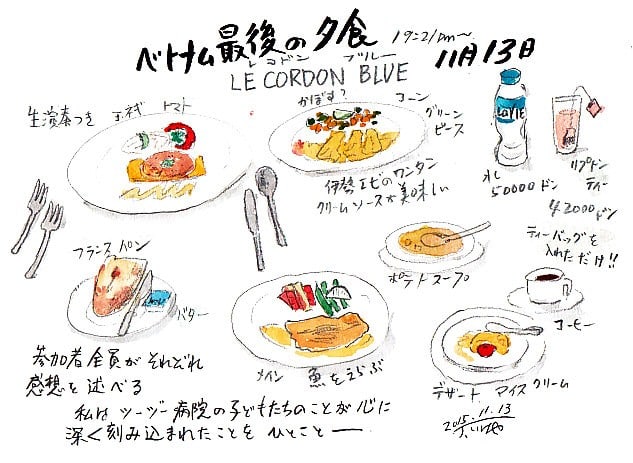 ベトナム最後の夕食 19:21/pm～
レコドン ブルー
LE CORDON BLUE
11月13日
生演奏つき
玉ネギ トマト
かぼす?
コーン
グリーン
ピース
伊勢エビのワンタン
クリームソースが美味しい
LaVIE
水
50000ドン
リプトン
ティー
42000ドン
ティーバッグを
入れただけ!!
フランスパン
バター
ポテトスープ
コーヒー
メイン 魚をえらぶ
デザート アイスクリーム
参加者全員がそれぞれ
感想を述べる
私はツーヅー病院の子どもたちのことが心に
深く刻み込まれたことをひとこと―
2015.11.13